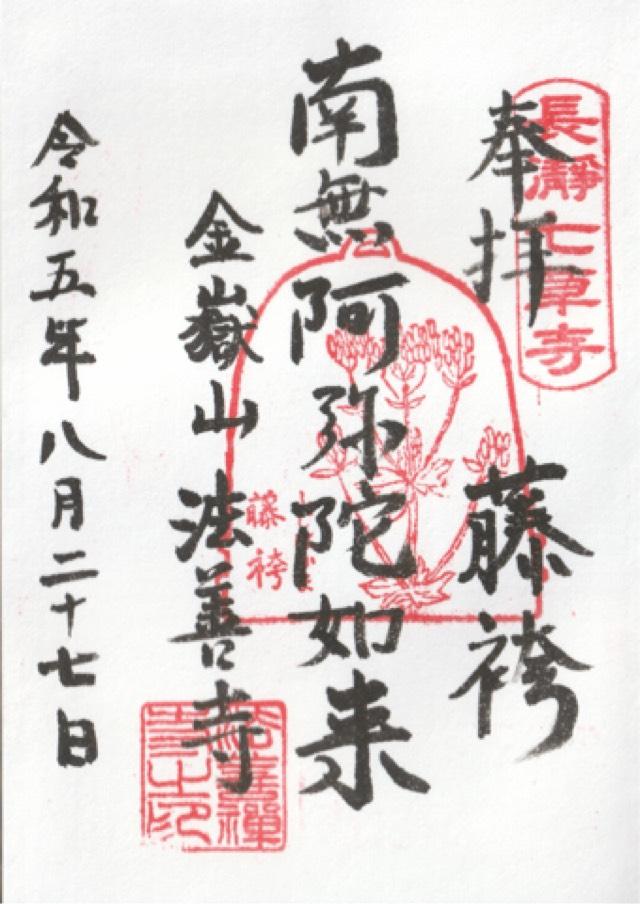 奉拝
藤袴
南無阿弥陀如来
金嶽山法善寺
令和五年八月二十七日
長瀞七草寺
藤袴